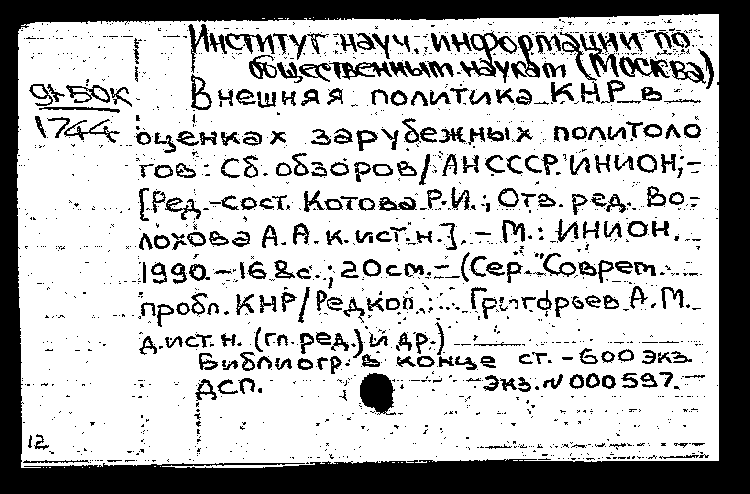 Институт науч. информации по
общественным наукам (Москва)
91-50К
1744
Внешняя политика КНР в
оценках зарубежных политоло
гов: Сб. обзоров/АН СССР. ИНИОН;-
[Ред.-сост. Котова Р.И.; Отв. ред. Во-
лохова А.А. к.ист.н.]. - М.: ИНИОН,
1990.-168с.; 20см.- (Сер. "Соврем.
пробл. КНР/Редкол.: Григорьев А.М.
д.ист.н. (гл.ред.) и др.)
Библиогр. в конце ст. - 600 экз.
ДСП. Экз. N 000597.
12